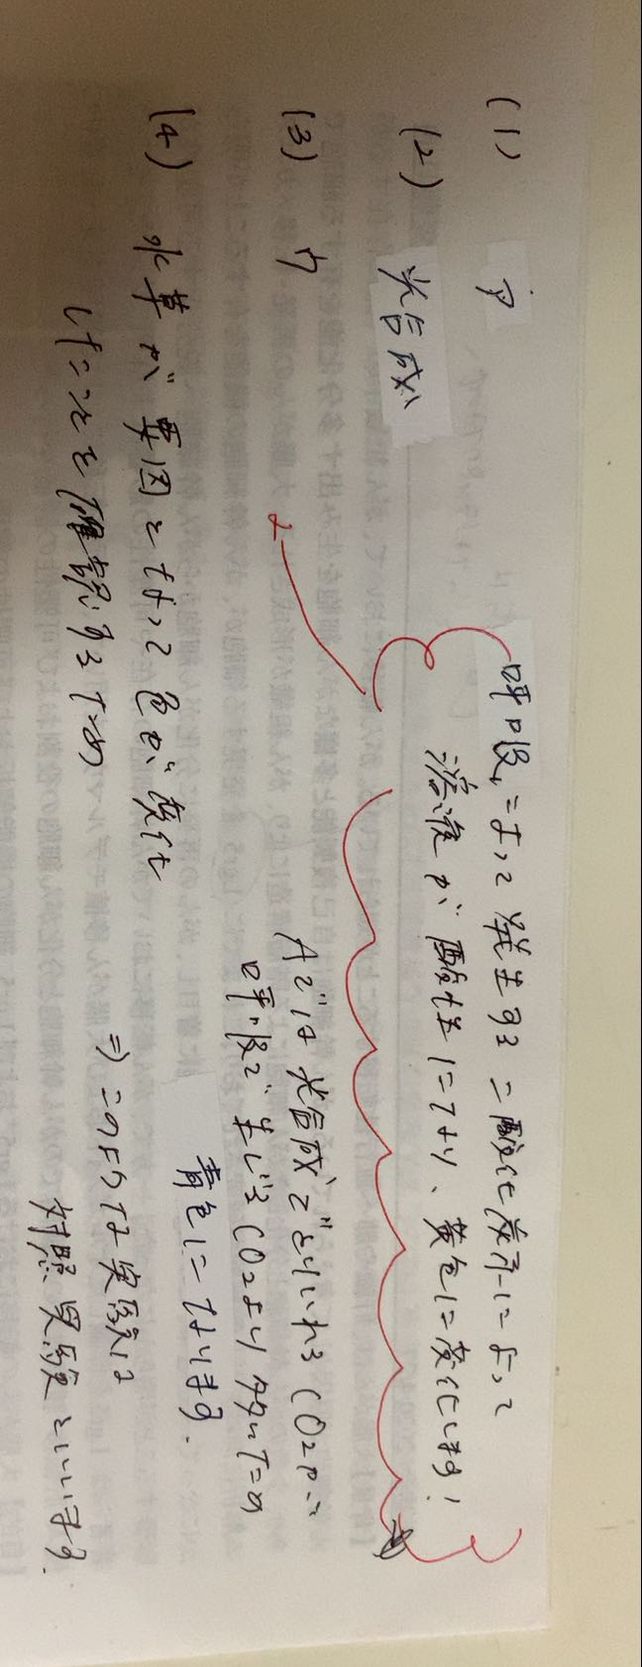 (1) ア
(2) 光合成
呼吸によって発生する二酸化炭素によって
溶液が酸性になり、黄色に変化します!
(3) ウ
Aでは光合成でとりいれるCO2が
呼吸で生じるCO2より多いため
青色になります。
(4) 水草が要因となって色が変化
したことを確認するため
⇒このような実験は
対照実験といいます。